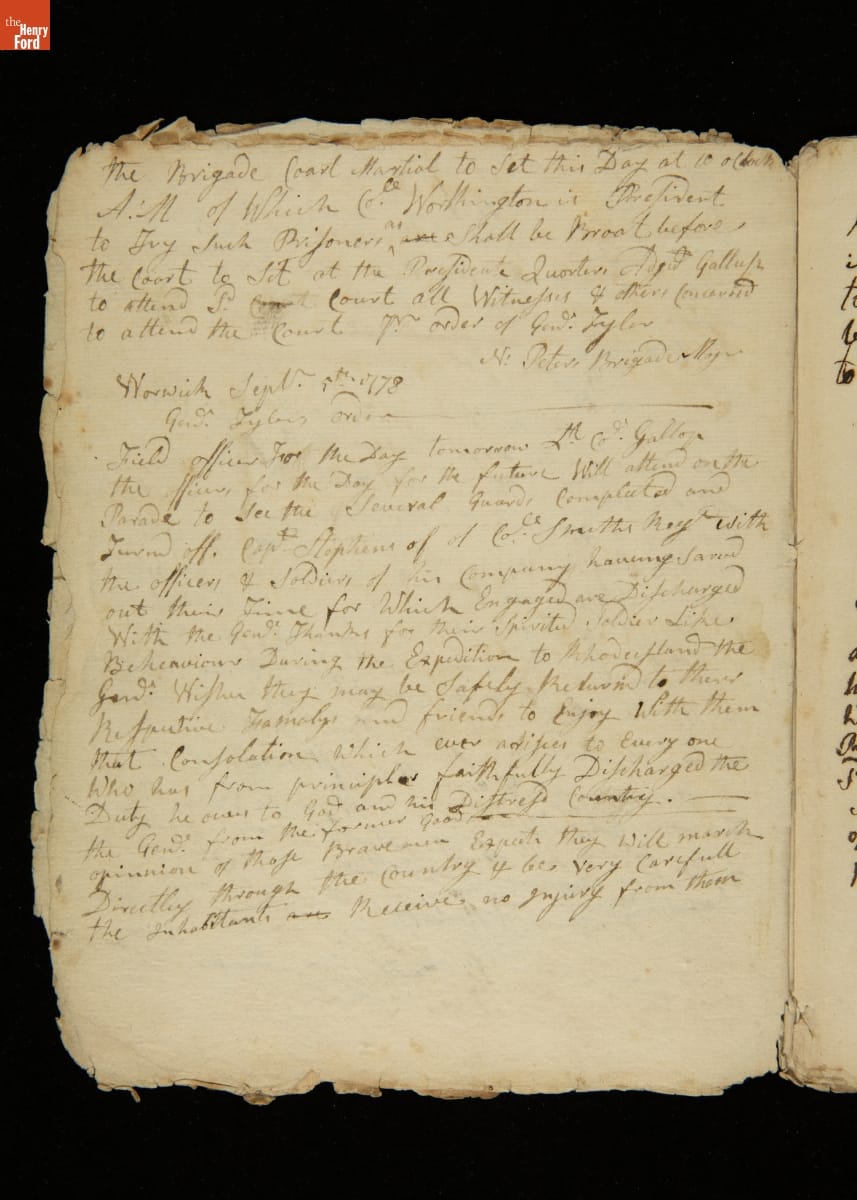 the Henry Ford
the Brigade Coart Martial to Set this Day at 10 oClock
A:M of Which Coll Worthington is President
to Try Such Prisoners as are Shall be Broat before
the Court to Set at the Presidents Quorters Adjt Gallup
to attend Sd Court Court all Witnesses & others Concerned
to attend the Court Pr order of Genl Tyler
Nn Peters Brigade Majr
Worwick Septr 5th 1778
Genl Tylers order
Field officer For the Day tomorrow Lt Col Gallop
the officers for the Day for the future Will attend on the
Parade to See the Several Guards Compleated and
Turnd off. Capt Stephens of Coll Smiths Regt with
the officers & Soldiers of his Company haveing Sarvd
out their Time for Which Engaged are Discharged
With the Genls Thanks for their Spirited Soldier Like
Beheaviour During the Expedition to Rhodeisland the
Genl Wishes they may be Safely Returnd to there
Respective Famalys and friends to Enjoy With them
that Consolation which ever arisses to Every one
Who has from principle faithfully Discharged the
Duty he owes to God and his Distressd Country.
the Genl from the former Good
opinnion of those Brave men Expects they will march
Directley through the Country & be very Carefull
the Inhabitants are Receive no Injury from them